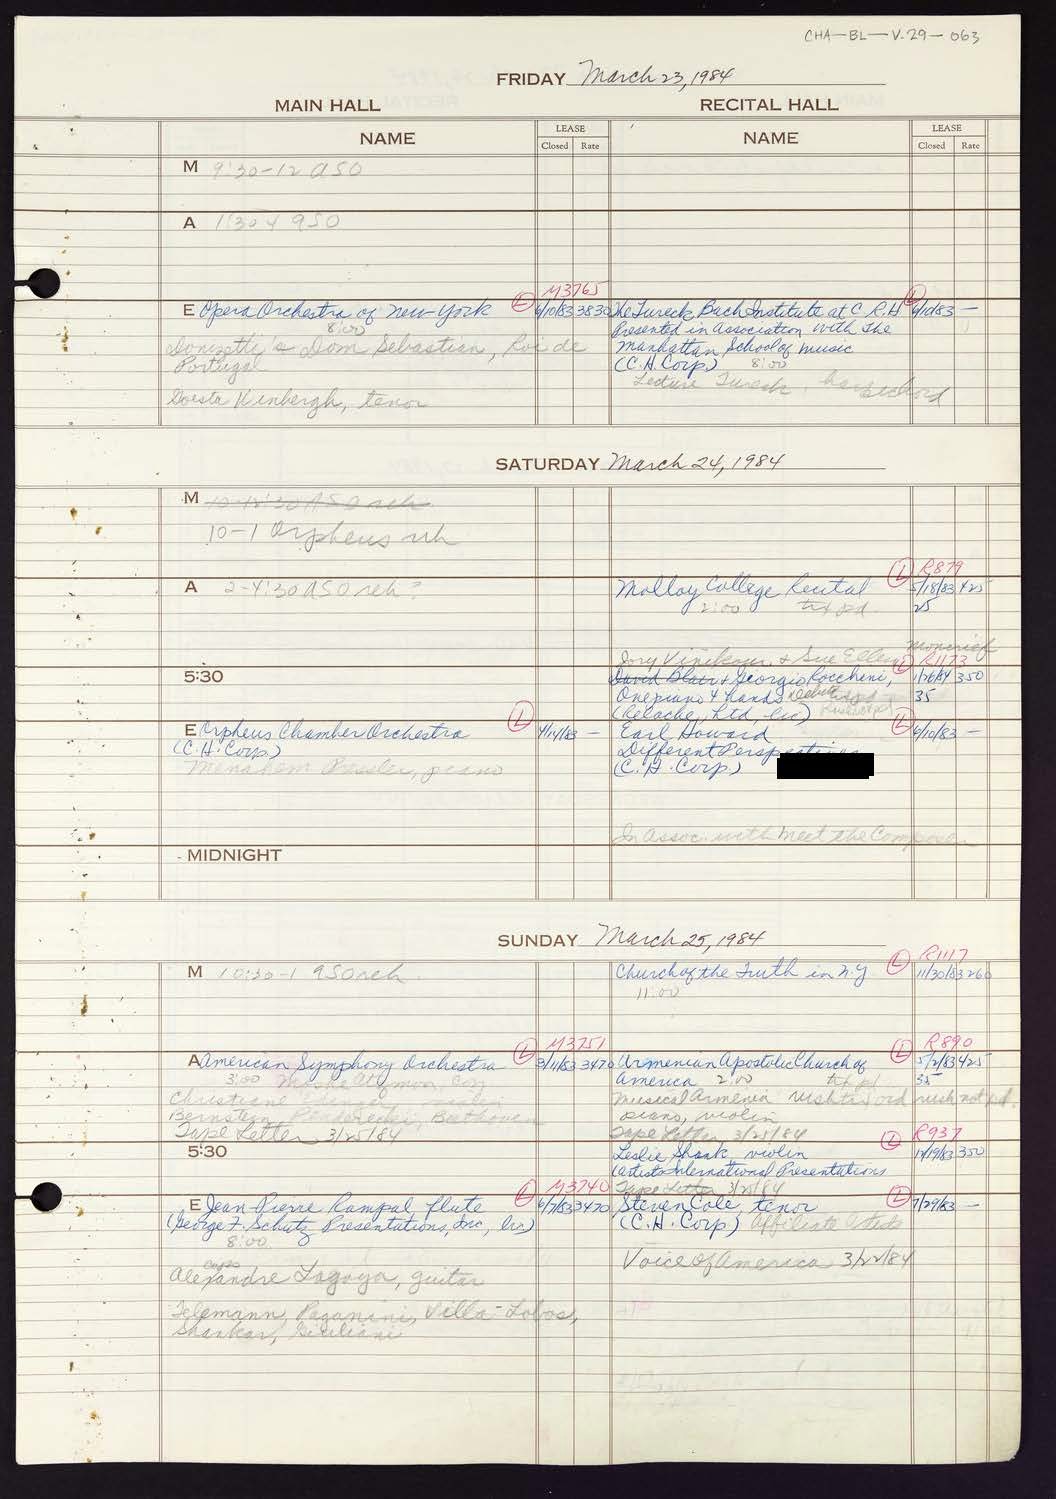 CHA-BL-V.29-063
FRIDAY March 23, 1984
MAIN HALL RECITAL HALL
NAME LEASE Closed Rate NAME LEASE Closed Rate
M 9:30-12 ASO
A 1:30-4 ASO
M3765
E Opera Orchestra of New York L 6/10/83 3830 The Tureck Bach Institute at C.R.H L 6/10/83 —
8:00 Presented in Association with the
Donizetti's Dom Sebastian, Roi de Manhattan School of Music
Portugal (C.H. Corp.) 8:00
Lecture Tureck, harpsichord
tenor
SATURDAY March 24, 1984
M 10-12:30 ASO reh
10-1 Orpheus reh
R879
A 2-4:30 ASO reh? Molloy College Recital L 5/18/83 425
2:00 tix pd 25
Jory Vinikour & Sue Ellen Moncrief
L R1173
5:30 David Blair & Giorgio 1/26/84 350
One piano 4 hands Debut 35
(Relache, Ltd, lic)
E Orpheus Chamber Orchestra L 4/14/83 — Earl Howard L 6/10/83 —
(C.H. Corp.) Different Perspectives
Menahem Pressler, piano (C.H. Corp.)
In Assoc. with Meet the Composer
MIDNIGHT
SUNDAY March 25, 1984
R1117
M 10:30-1 ASO reh. Church of the Truth in N.Y. L 11/30/83 260
11:00
M3751 R890
A American Symphony Orchestra L 3/11/83 3470 Armenian Apostolic Church of L 5/2/83 425
3:00 Moshe Atzmon, con America 2:00 tix pd 35
Christiane Edinger, violin Musical Armenia rush tix ord rush not pd.
Bernstein Penderecki, Beethoven piano, violin
Tape Letter 3/25/84 Tape Letter 3/25/84
R937
5:30 Leslie Shank, violin L 350
(Artists International Presentations
M3740 Tape Letter 3/25/84
E Jean-Pierre Rampal flute L 6/7/83 3470 Steven Cole, tenor L 7/29/83 —
(George F. Schutz Presentations, Inc, lic) (C.H. Corp) Affiliate Artists
8:00
Alexandre Lagoya, guitar Voice of America 3/22/84
Telemann, Paganini, Villa-Lobos,
Shankar, Giuliani